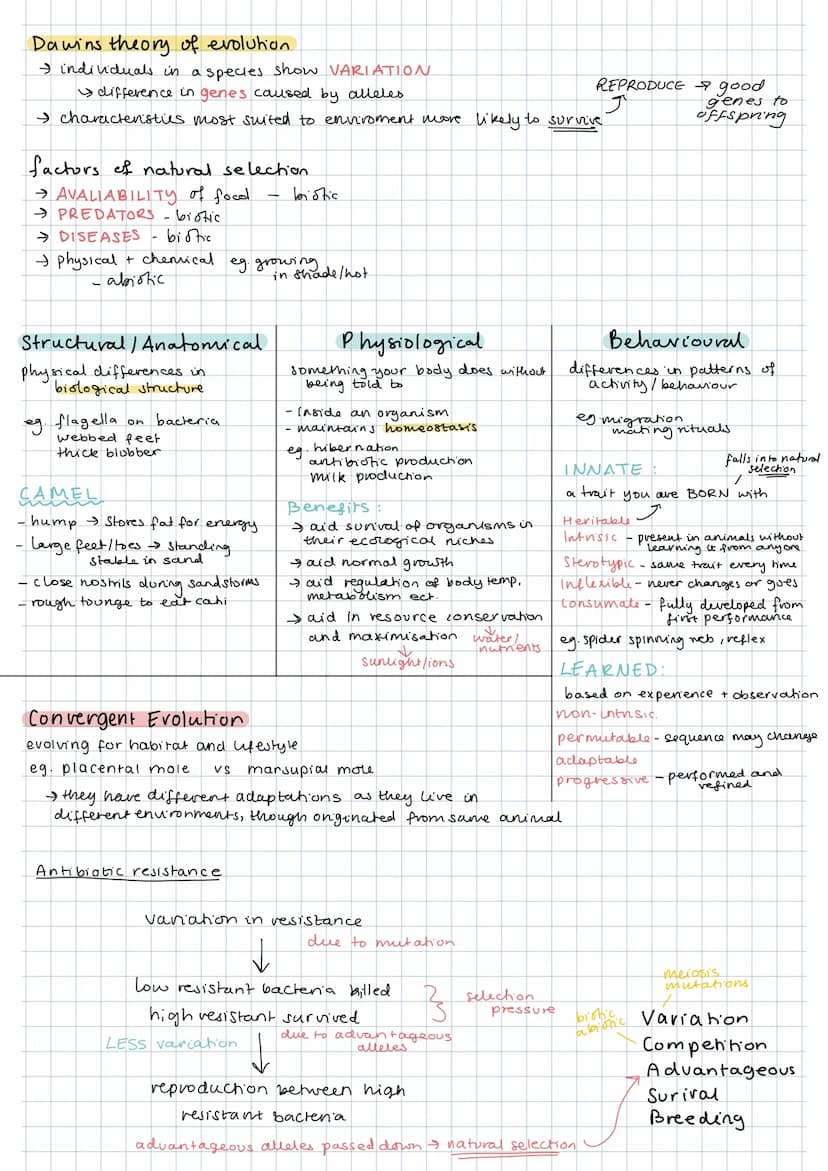 Dawins theory of evolution
→ individuals in a species show VARIATION
↳ difference in genes caused by alleles
→ characteristics most suited to enviroment more likely to survive
REPRODUCE → good
genes to
offspring
factors of natural selection
→ AVALIABILITY of food - biotic
→ PREDATORS - biotic
→ DISEASES - biotic
→ physical + chemical eg. growing
in shade/hot
- abiotic
Structural/Anatomical
physical differences in
biological structure
eg. flagella on bacteria
webbed feet
thick blobber
CAMEL
- hump → stores fat for energy
- large feet/toes → standing
stable in sand
- close nostrils during sandstorms
- rough tounge to eat cahi
Physiological
something your body does without
being told to
- inside an organism
- maintains homeostasis
eg. hibernation
antibiotic production
milk production
Benefits:
→ aid surival of organisms in
their ecological niches
→ aid normal growth
→ aid regulation of body temp,
metabolism ect.
→ aid in resource conservation
and maximisation water/
nutrients
↓
sunlight/ions
Behavioural
differences in patterns of
activity/behaviour
eg migration
mating rituals
falls into natural
selection
INNATE:
a trait you are BORN with
Heritable
Intrisic - present in animals without
learning it from anyone
Sterotypic - same trait every time
Inflexible - never changes or goes
Consumate - fully developed from
first performance
eg. spider spinning web, reflex
LEARNED:
based on experience + observation
non-intrisic.
permutable - sequence may change
adaptable
progressive - performed and
refined
Convergent Evolution
evolving for habitat and lifestyle
eg. placental mole vs marsupial mole
→ they have different adaptations as they live in
different environments, though originated from same animal
Antibiotic resistance
variation in resistance
↓ due to mutation
low resistant bacteria killed
high resistant survived
selection
pressure
LESS variation
↓ due to advantageous
alleles
reproduction between high
resistant bacteria
advantageous alleles passed down → natural selection
meiosis
mutations
biotic
abiotic
Variation
Competition
Advantageous
Surival
Breeding